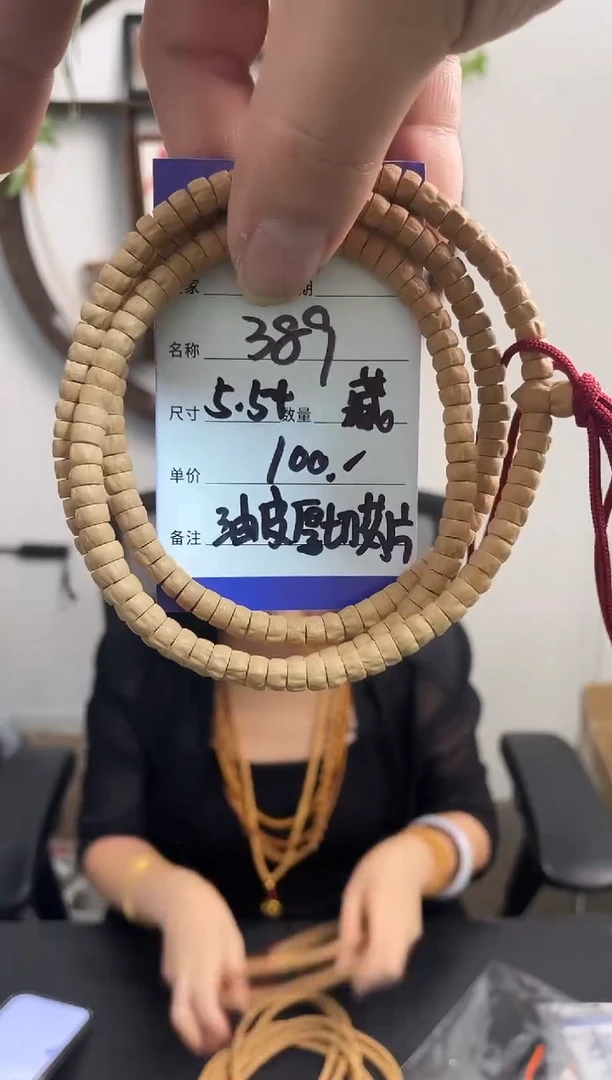 家 期
名称 389
尺寸 5.5+ 数量 藏
单价 100.-
备注 油皮厚切芯片